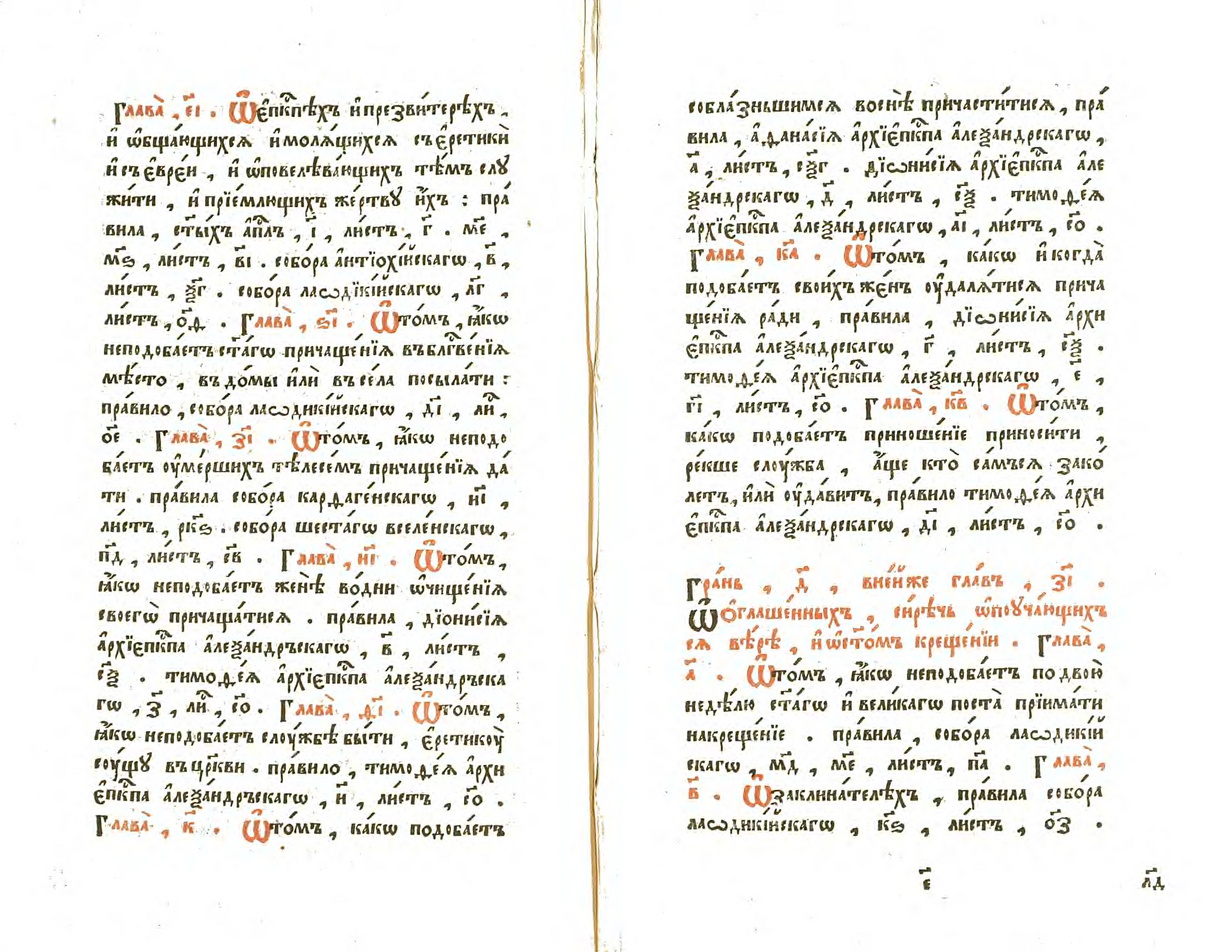 Глава̀ , є҃і . Ѿ є҆пⷭ҇кпѣхъ и҆ презви́терѣхъ ,
и҆ ѡ҆бща́ющихсѧ и҆ молѧ́щихсѧ съ є҆ретикѝ
и҆ съ є҆врє́и , и҆ ѡ҆ повелѣва́ющихъ тѣ́мъ слꙋ
жи́ти , и҆ прїе́млющихъ же́ртвꙋ и҆́хъ : пра́
вила , ст҃ы́хъ а҆пⷭ҇лъ , і҃ , ли́стъ , г҃ . м҃е ,
м҃ѕ , ли́стъ , в҃і . собо́ра а҆нтїѻхі́йскагѡ , в҃ ,
ли́стъ , ѯ҃г . собо́ра лаѻдїкі́йскагѡ , л҃г ,
ли́стъ , о҃д . Глава̀ , ѕ҃і . Ѿ то́мъ , ꙗ҆́кѡ
неподоба́етъ ст҃а́гѡ причаще́нїѧ въ блгⷭ҇ве́нїѧ
мѣ́сто , въ до́мы и҆лѝ въ се́ла посыла́ти :
пра́вило , собо́ра лаѻдикі́йскагѡ , д҃і , лиⷭ҇ ,
о҃е . Глава̀ , з҃і . Ѿ то́мъ , ꙗ҆́кѡ неподо
ба́етъ оу҆ме́ршихъ тѣлесе́мъ причаще́нїѧ да́
ти . пра́вила собо́ра карѳаге́нскагѡ , и҃і ,
ли́стъ , рк҃ѕ . собо́ра шеста́гѡ вселе́нскагѡ ,
п҃д , ли́стъ , с҃в . Глава̀ , и҃і . Ѿ то́мъ ,
ꙗ҆́кѡ неподоба́етъ женѣ̀ во дни ѡ҆чище́нїѧ
своегѡ̀ причаща́тисѧ . пра́вила , дїони́сїѧ
а҆рхїепⷭ҇кпа а҆леѯа́ндръскагѡ , в҃ , ли́стъ ,
с҃ѯ . тимоѳе́ѧ а҆рхїепⷭ҇кпа а҆леѯа́ндръска
гѡ , з҃ , лиⷭ҇ , с҃о . Глава̀ , ѳ҃і . Ѿ то́мъ ,
ꙗ҆́кѡ неподоба́етъ слоу́жбѣ бы́ти , є҆ретикоу̀
соу́щꙋ въ цр҃кви . пра́вило , тимоѳе́ѧ а҆рхи
є҆пⷭ҇кпа а҆леѯа́ндръскагѡ , и҃ , ли́стъ , с҃о .
Глава̀ , к҃ . Ѿ то́мъ , ка́кѡ подоба́етъ
собла́зньшимсѧ во снѣ̀ причасти́тисѧ , пра́
вила , а҆ѳана́сїѧ а҆рхїепⷭ҇кпа а҆леѯа́ндрскагѡ ,
а҃ , ли́стъ , сѯ҃г . дїѻни́сїѧ а҆рхїепⷭ҇кпа а҆ле
ѯа́ндрскагѡ , д҃ , ли́стъ , с҃ѯ . тимоѳе́ѧ
а҆рхїепⷭ҇кпа а҆леѯа́ндрскагѡ , а҃і , ли́стъ , с҃о .
Глава̀ , к҃а . Ѿ то́мъ , ка́кѡ и҆ когда̀
подоба́етъ свои́хъ же́нъ оу҆далѧ́тисѧ прича
ще́нїѧ ра́ди , пра́вила , дїѻни́сїѧ а҆рхи
є҆пⷭ҇кпа а҆леѯа́ндрскагѡ , г҃ , ли́стъ , с҃ѯ .
тимоѳе́ѧ а҆рхїепⷭ҇кпа а҆леѯа́ндрскагѡ , є҃ ,
г҃і , ли́стъ , с҃о . Глава̀ , к҃в . Ѿ то́мъ ,
ка́кѡ подоба́етъ приноше́нїе приноси́ти ,
ре́кше слоу́жба , а҆́ще кто̀ са́мъ сѧ зако́
летъ , и҆лѝ оу҆да́витъ , пра́вило тимоѳе́ѧ а҆рхи
є҆пⷭ҇кпа а҆леѯа́ндрскагѡ , д҃і , ли́стъ , с҃о .
Гра́нь , д҃ , в не́йже гла́въ , з҃і .
Ѿ ѻ҆глаше́нныхъ , си́рѣчь ѡ҆ поуча́ющих
сѧ вѣ́рѣ , и҆ ѡ҆ ст҃о́мъ креще́нїи . Глава̀ ,
а҃ . Ѿ то́мъ , ꙗ҆́кѡ неподоба́етъ по двою̀
недѣ́лю ст҃а́гѡ и҆ вели́кагѡ поста̀ прїима́ти
на креще́нїе . пра́вила , собо́ра лаѻдикі́й
скагѡ , м҃д , м҃е , ли́стъ , п҃а . Глава̀ ,
в҃ . Ѿ заклина́телѣхъ , пра́вила собо́ра
лаѻдикі́йскагѡ , к҃ѕ , ли́стъ , о҃з .
є҃ л҃д